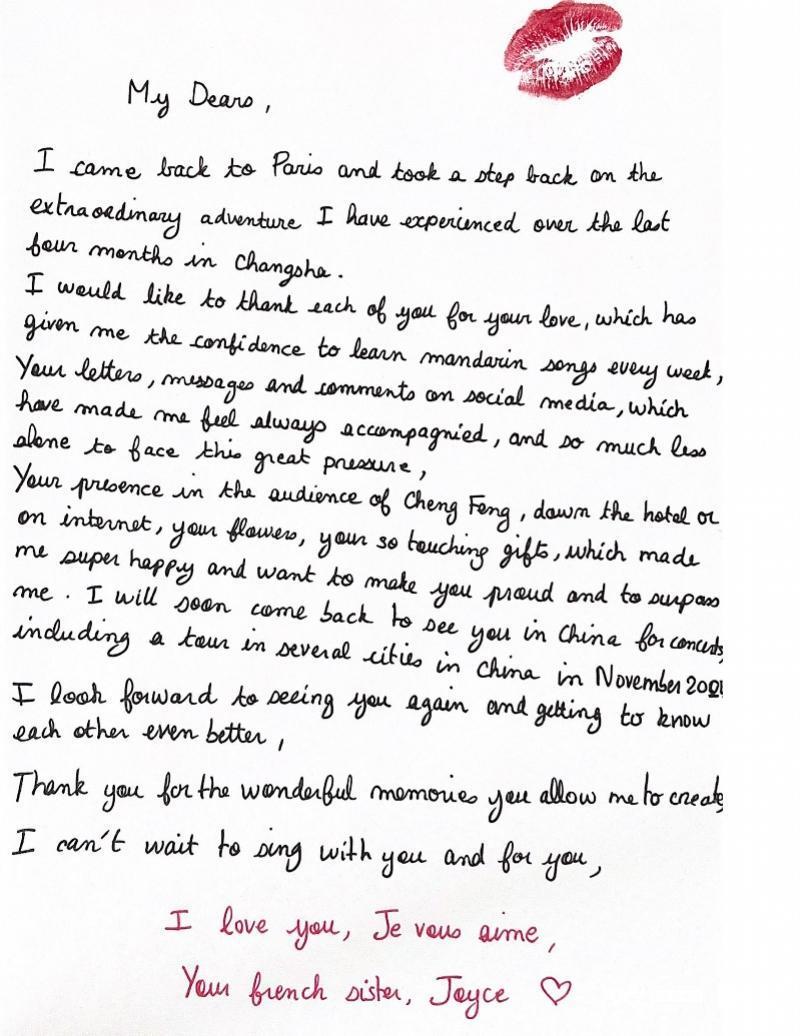 My Dears,
I came back to Paris and took a step back on the
extraordinary adventure I have experienced over the last
four months in Changsha.
I would like to thank each of you for your love, which has
given me the confidence to learn mandarin songs every week,
Your letters, messages and comments on social media, which
have made me feel always accompagnied, and so much less
alone to face this great pressure,
Your presence in the audience of Cheng Feng, down the hotel or
on internet, your flowers, your so touching gifts, which made
me super happy and want to make you proud and to surpass
me. I will soon come back to see you in China for concerts,
including a tour in several cities in China in November
I look forward to seeing you again and getting to know
each other even better,
Thank you for the wonderful memories you allow me to create
I can't wait to sing with you and for you,
I love you, Je vous aime,
Your french sister, Joyce ♡